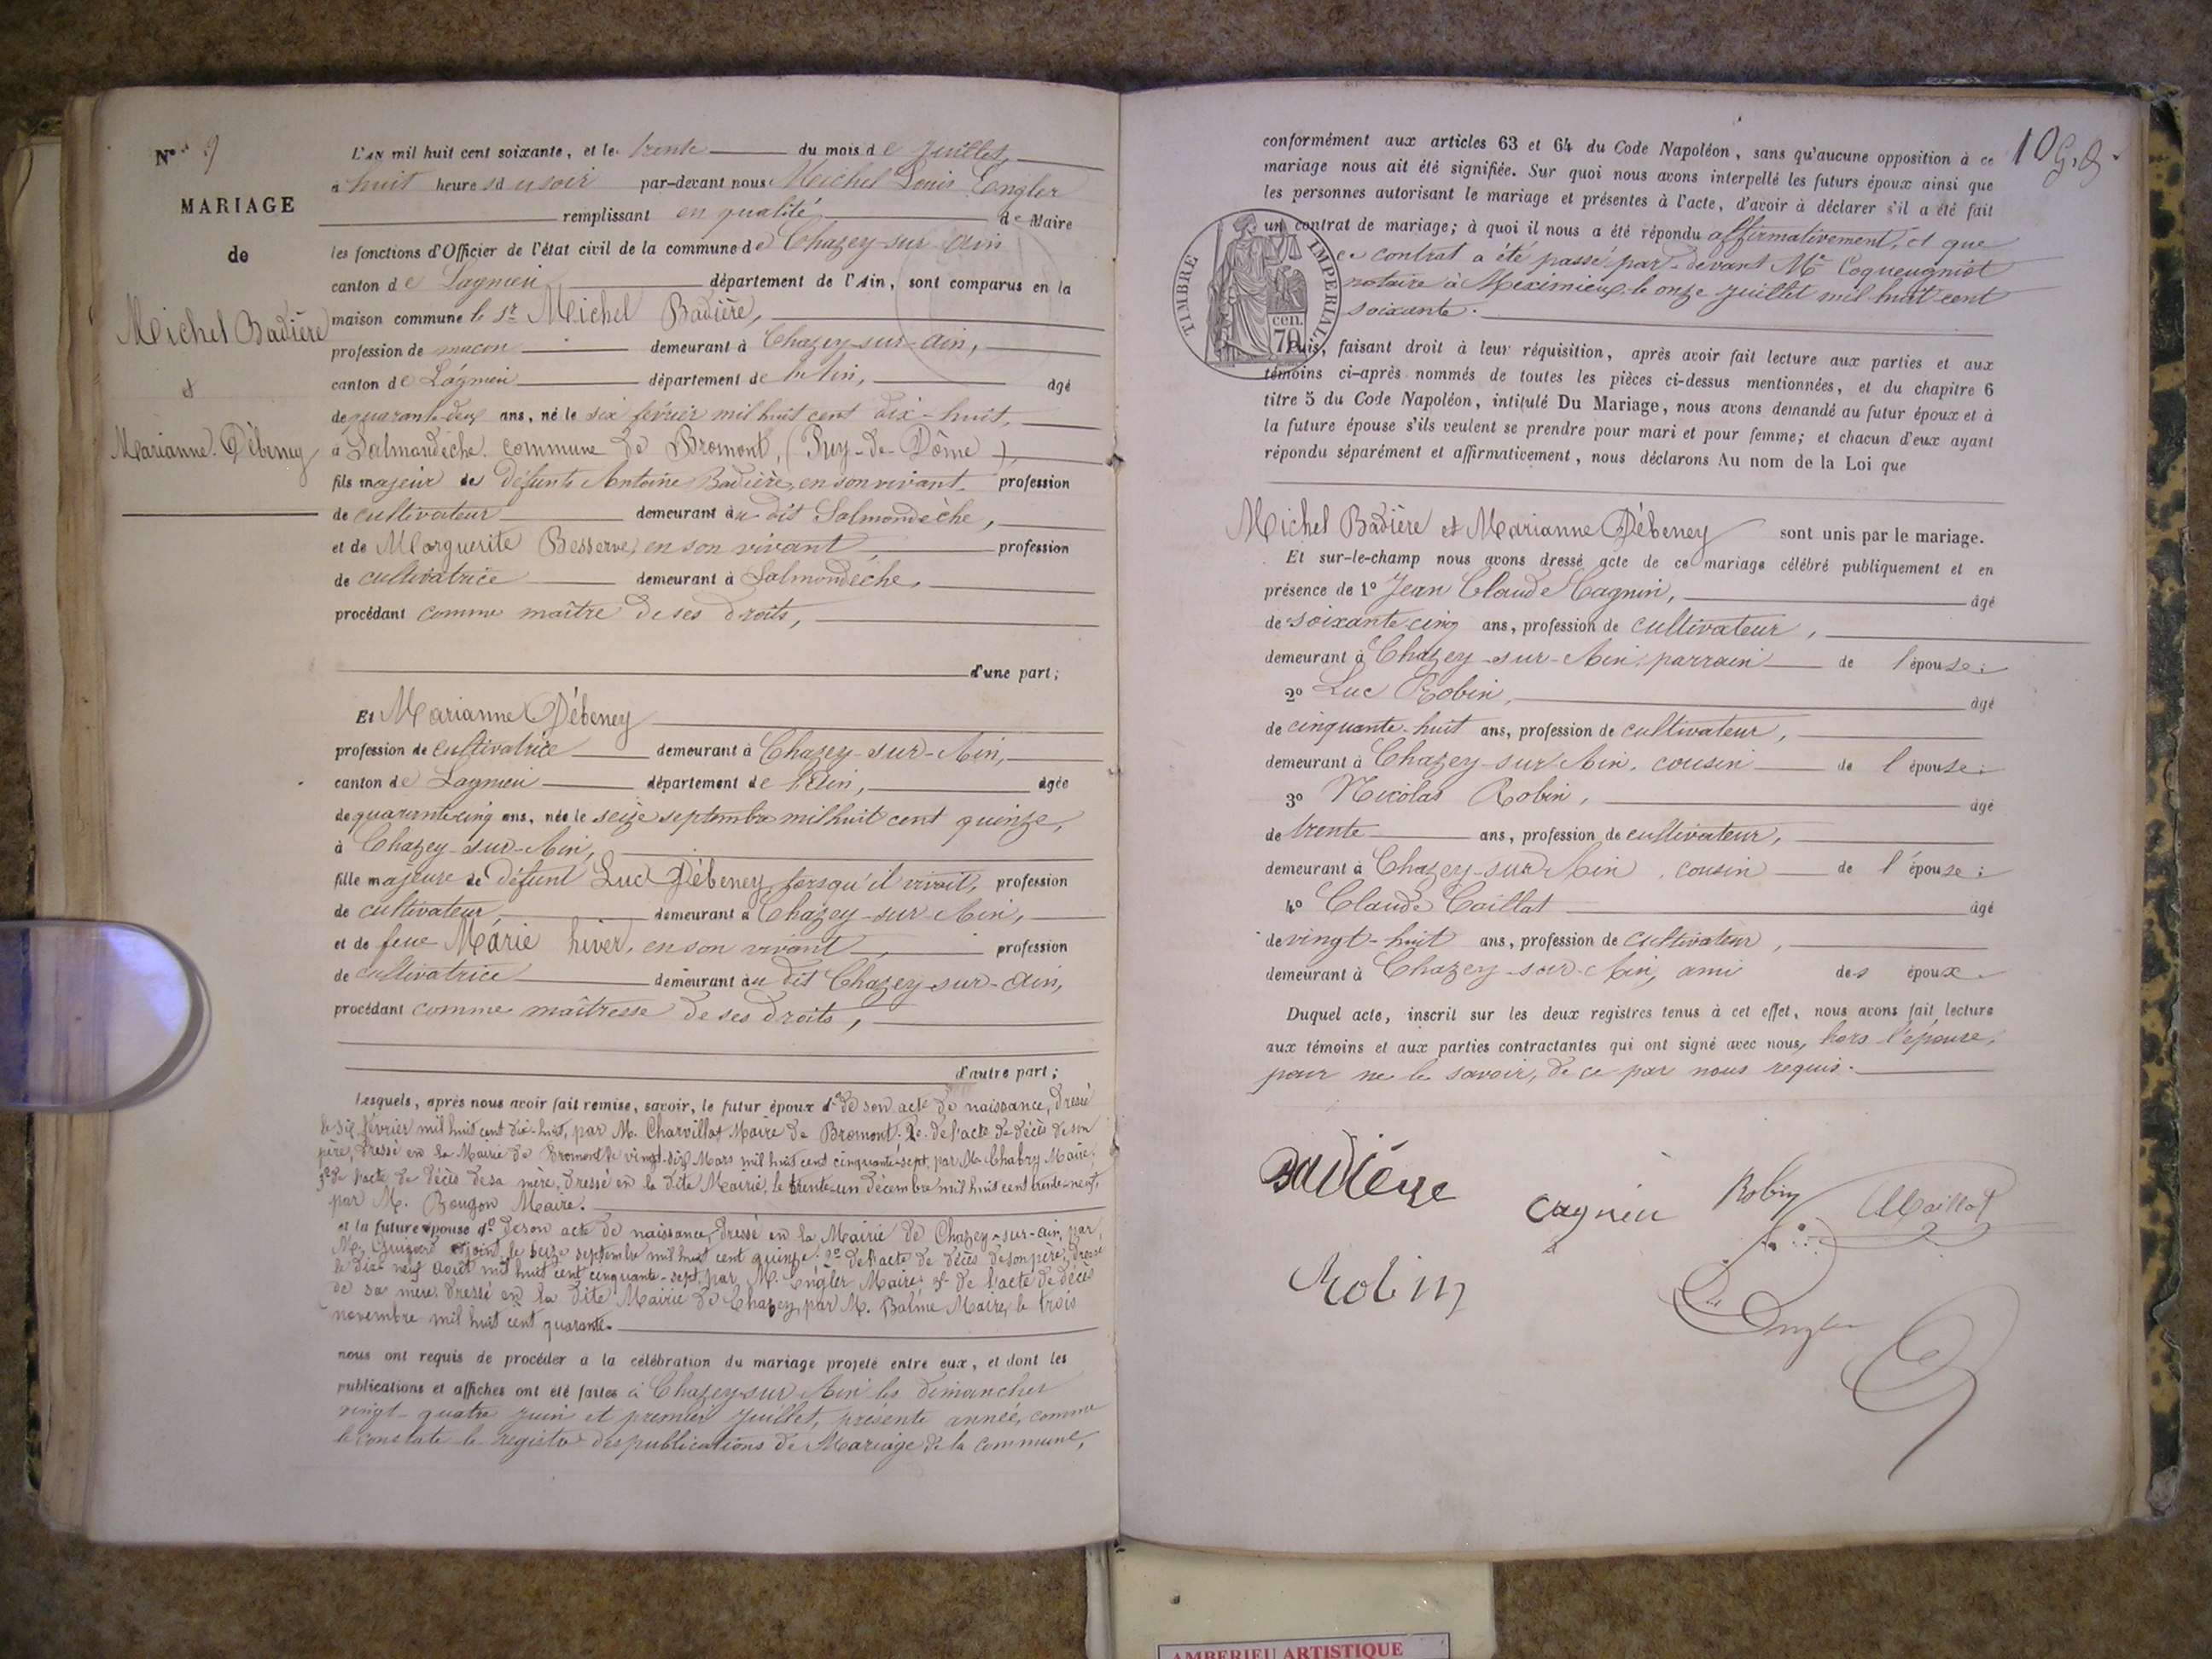 N° 9
MARIAGE
de
Michel Badière
et
Marianne Débeney
L'AN mil huit cent soixante, et le trente du mois de Juillet,
à huit heures du soir par-devant nous Michel Louis Engler
remplissant en qualité de Maire
les fonctions d'Officier de l'état civil de la commune de Chazey-sur-Ain
canton de Lagnieu département de l'Ain, sont comparus en la
maison commune le Sr Michel Badière,
profession de maçon demeurant à Chazey-sur-Ain,
canton de Lagnieu département de l'Ain, âgé
de quarante-deux ans, né le six février mil huit cent dix-huit,
à Salmondèche commune de Bromont, (Puy-de-Dôme),
fils majeur des défunts Antoine Badière, en son vivant profession
de cultivateur demeurant au dit Salmondèche,
et de Marguerite Besserve, en son vivant, profession
de cultivatrice demeurant à Salmondèche,
procédant comme maître de ses droits,
d'une part;
Et Marianne Débeney
profession de cultivatrice demeurant à Chazey-sur-Ain,
canton de Lagnieu département de l'Ain, âgée
de quarante cinq ans, née le seize septembre mil huit cent quinze,
à Chazey-sur-Ain,
fille majeure de défunt Luc Débeney, lorsqu'il vivait, profession
de cultivateur, demeurant à Chazey-sur-Ain,
et de feue Marie hiver, en son vivant, profession
de cultivatrice demeurant au dit Chazey-sur-Ain,
procédant comme maîtresse de ses droits,
d'autre part;
Lesquels, après nous avoir fait remise, savoir, le futur époux 1° de son acte de naissance, dressé
le six février mil huit cent dix-huit, par M. Charvillat Maire de Bromont; 2° de l'acte de décès de son
père, dressé en la Mairie de Bromont le vingt-dix Mars mil huit cent cinquante-sept, par M. Chabry Maire;
3° de l'acte de décès de sa mère, dressé en la dite Mairie, le trente-un décembre mil huit cent trente-neuf,
par M. Bougon Maire.
et la future épouse 1° de son acte de naissance, dressé en la Mairie de Chazey-sur-ain, par
M. Guigard adjoint, le seize septembre mil huit cent quinze; 2° de l'acte de décès de son père, dressé
le dix neuf Août mil huit cent cinquante-sept, par M. Engler Maire; 3° de l'acte de décès
de sa mère, dressé en la dite Mairie de Chazey, par M. Balme Maire, le trois
novembre mil huit cent quarante.
nous ont requis de procéder à la célébration du mariage projeté entre eux, et dont les
publications et affiches ont été faites à Chazey-sur-Ain les dimanches
vingt-quatre juin et premier Juillet, présente année, comme
le constate le registre des publications de Mariage de la commune,
10
conformément aux articles 63 et 64 du Code Napoléon, sans qu'aucune opposition à ce
mariage nous ait été signifiée. Sur quoi nous avons interpellé les futurs époux ainsi que
les personnes autorisant le mariage et présentes à l'acte, d'avoir à déclarer s'il a été fait
un contrat de mariage; à quoi il nous a été répondu affirmativement, et que
ce contrat a été passé par-devant Me Coqueugniot
notaire à Meximieux le onze Juillet mil huit cent
soixante.
TIMBRE IMPERIAL
70 cen.
Puis, faisant droit à leur réquisition, après avoir fait lecture aux parties et aux
témoins ci-après nommés de toutes les pièces ci-dessus mentionnées, et du chapitre 6
titre 5 du Code Napoléon, intitulé Du Mariage, nous avons demandé au futur époux et à
la future épouse s'ils veulent se prendre pour mari et pour femme; et chacun d'eux ayant
répondu séparément et affirmativement, nous déclarons Au nom de la Loi que
Michel Badière et Marianne Débeney sont unis par le mariage.
Et sur-le-champ nous avons dressé acte de ce mariage célébré publiquement et en
présence de 1° Jean Claude Cagnin, âgé
de soixante-cinq ans, profession de cultivateur,
demeurant à Chazey-sur-Ain, parrain de l'épouse;
2° Luc Robin, âgé
de cinquante-huit ans, profession de cultivateur,
demeurant à Chazey-sur Ain, cousin de l'épouse;
3° Nicolas Robin, âgé
de trente ans, profession de cultivateur,
demeurant à Chazey-sur Ain, cousin de l'épouse;
4° Claude Caillat âgé
de vingt-huit ans, profession de cultivateur,
demeurant à Chazey-sur-Ain, ami des époux.
Duquel acte, inscrit sur les deux registres tenus à cet effet, nous avons fait lecture
aux témoins et aux parties contractantes qui ont signé avec nous, hors l'épouse,
pour ne le savoir, de ce par nous requis.
Badière Cagnin Robin Caillat
Robin Engler
AMBERIEU ARTISTIQUE